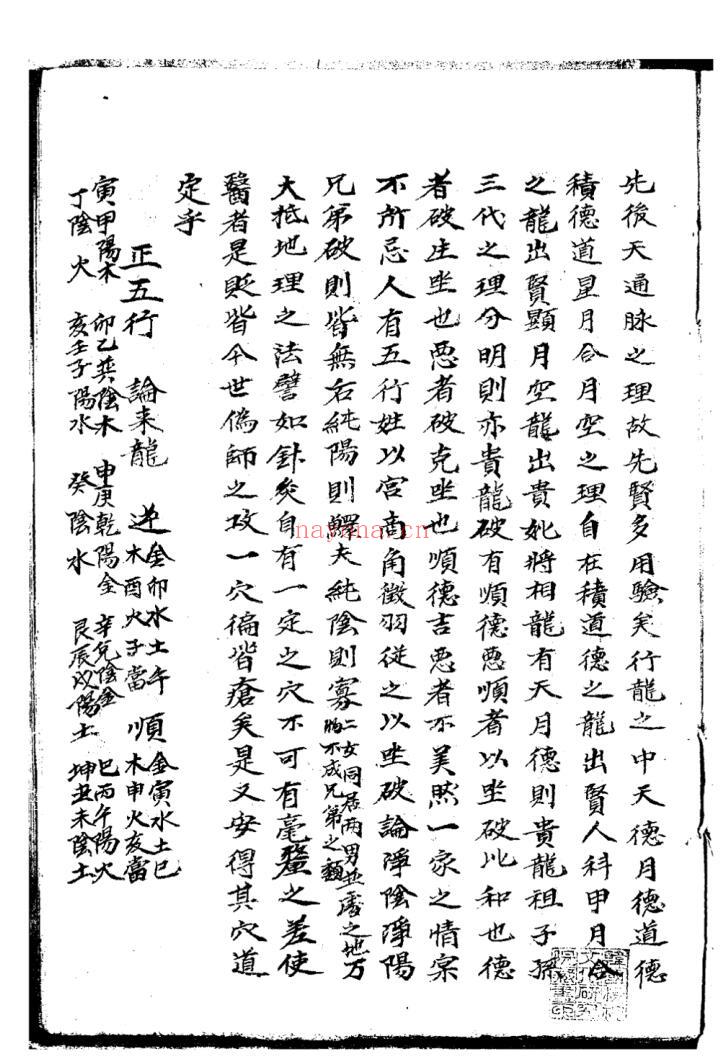 先後天通脉之理故先賢多用驗矣行龍之中天德月德道德
積德道星月合月空之理自在積道德之龍出賢人科甲月合
之龍出賢顯月空龍出貴妣將相龍有天月德則貴龍祖子孫
三代之理分明則亦貴龍破有順德悪順者以坐破比和也德
者破生坐也悪者破克坐也順德吉悪者不美然一家之情宗
不所忌人有五行姓以宮商角徵羽従之以坐破論淨陰淨陽
兄弟破則皆無右純陽則鰥夫純陰則寡二女同居兩男並處之地万
胎不成兄弟之
大抵地理之法譬如針灸自有一定之穴不可有毫釐之差使
醫者是貶皆今世偽師之攻一穴徧皆瘡矣是又安得其穴道
定乎
正五行 論来龍 逆金卯水土午 順金寅水土巳
木酉火子當 木申火亥當
寅甲陽木 卯乙巽陰木 申庚乾陽金 辛兌陰金 巳丙午陽火
丁陰火 亥壬子陽水 癸陰水 艮辰戌陽土 坤丑未陰土
nayona.cn